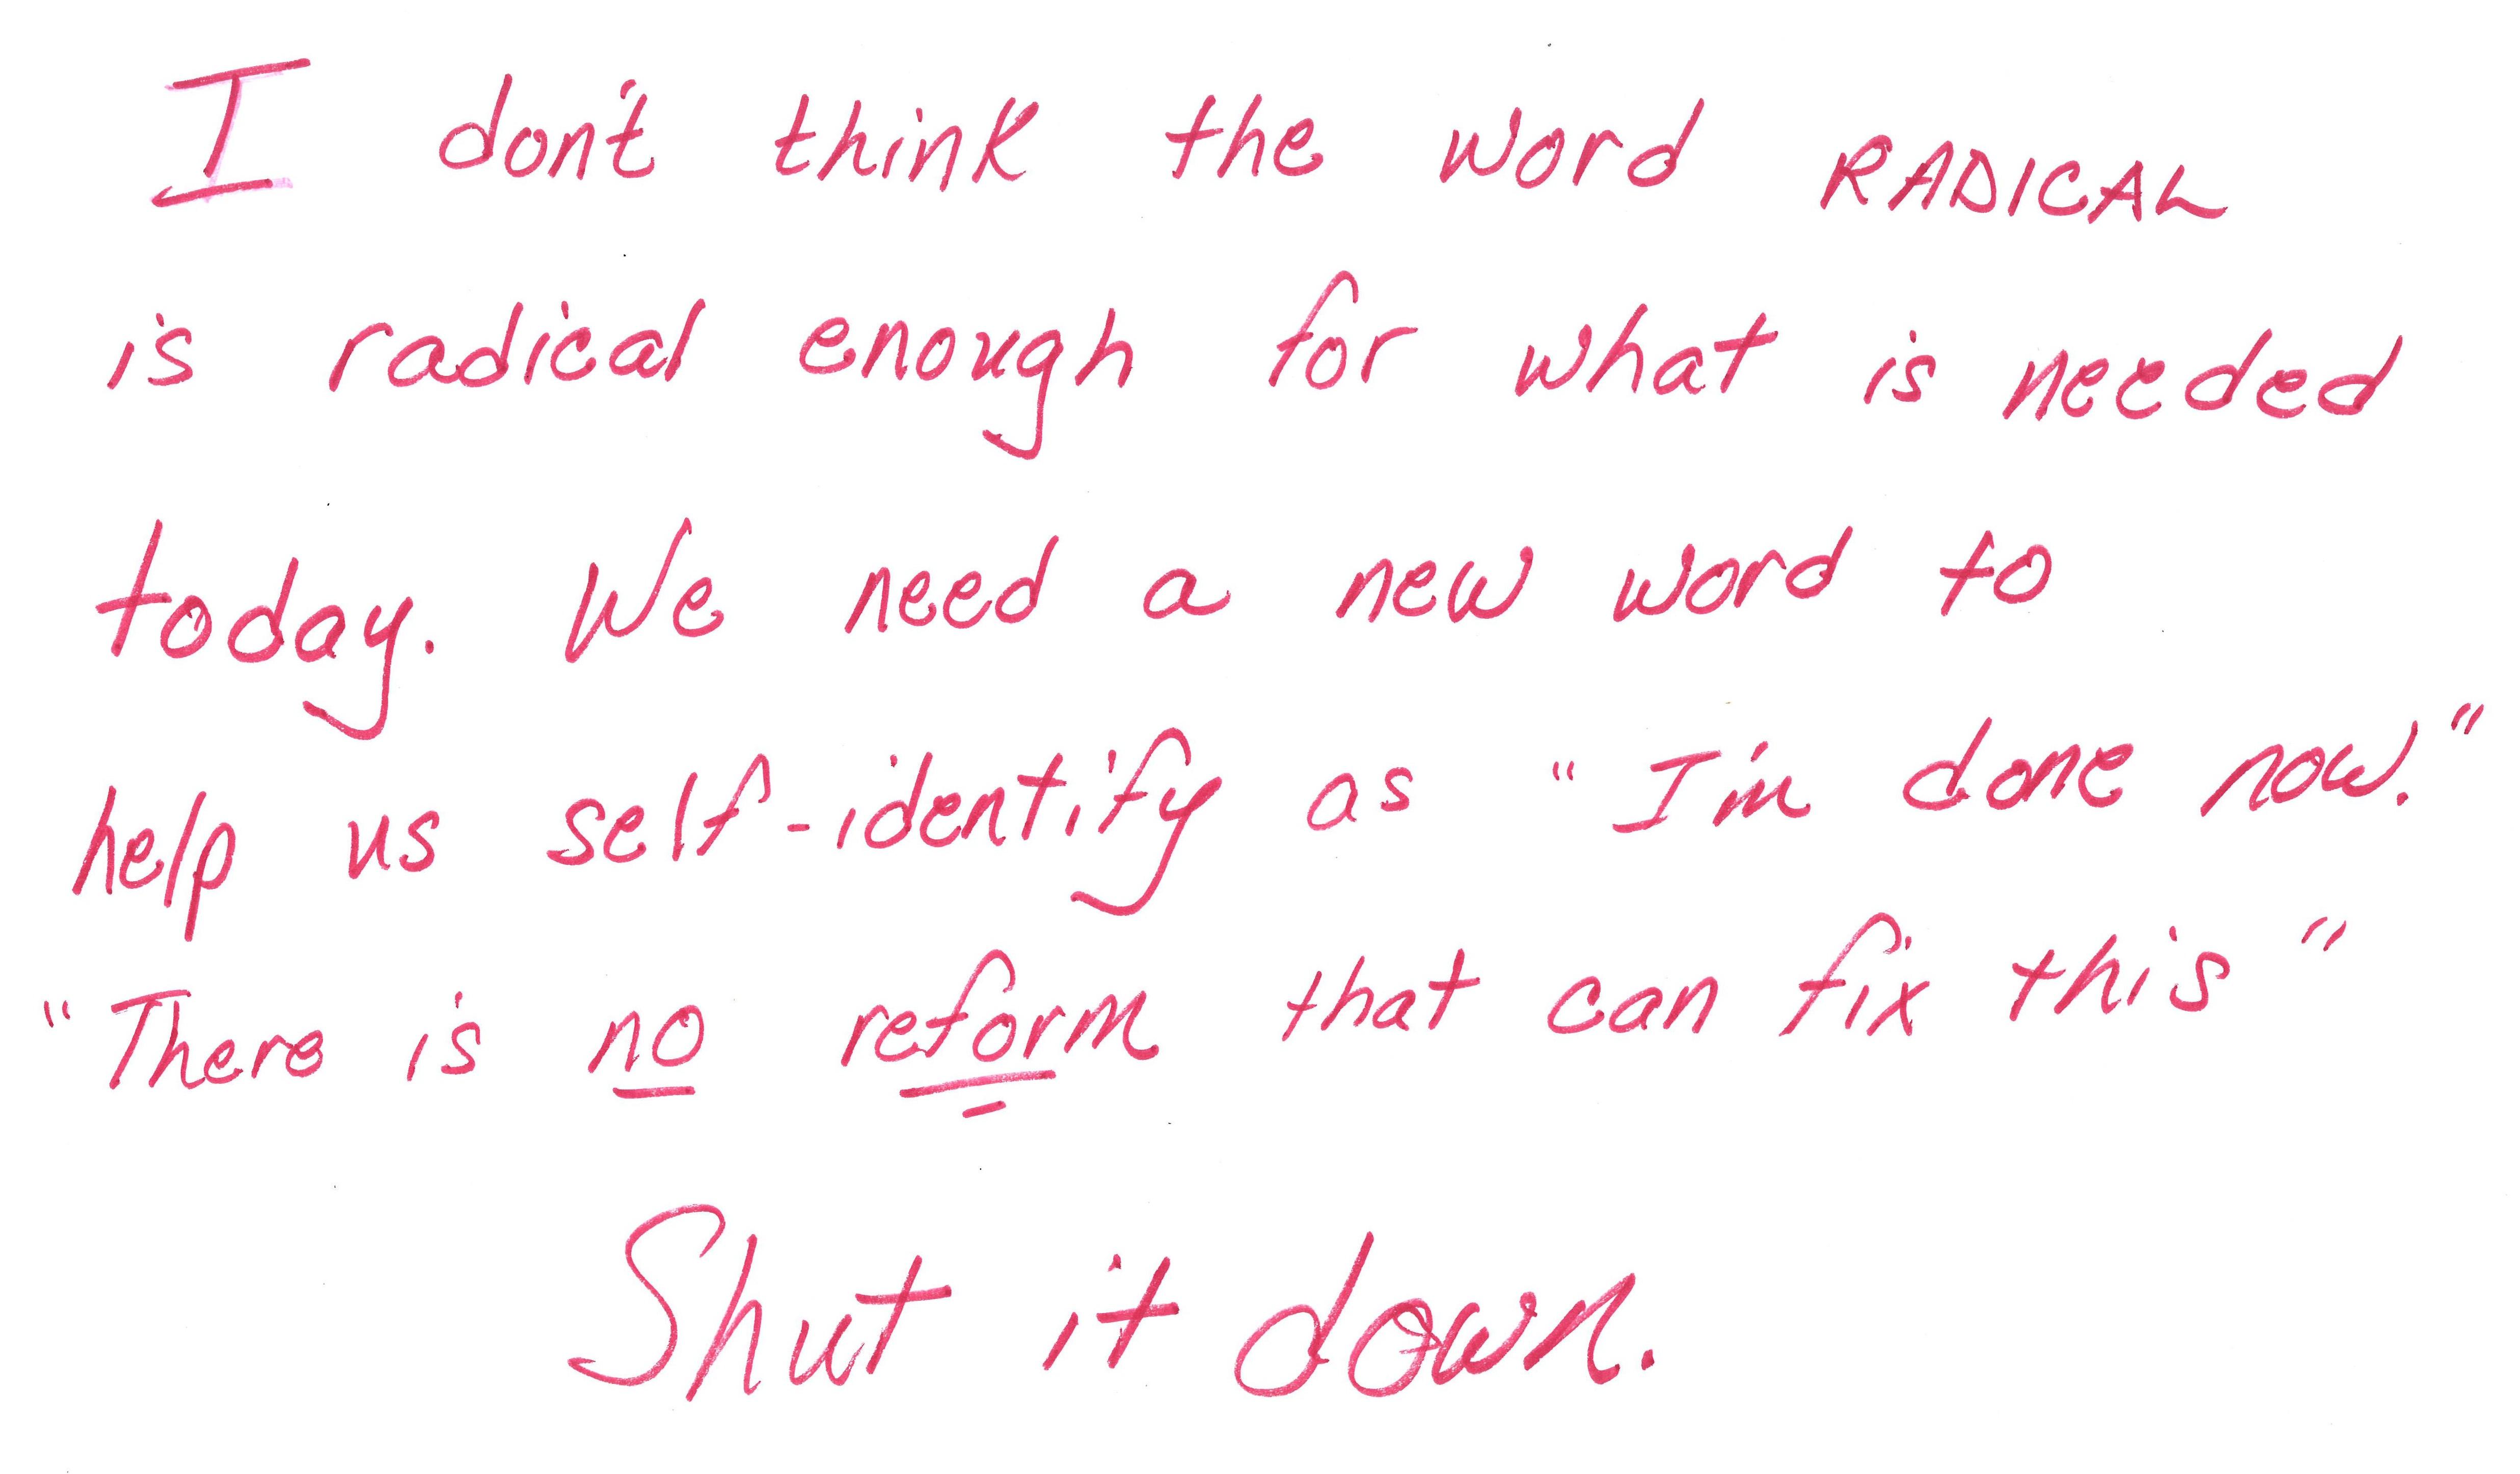 I don't think the word RADICAL
is radical enough for what is needed
today. We need a new word to
help us self-identify as "I'm done now."
"There is no reform that can fix this"
Shut it down.